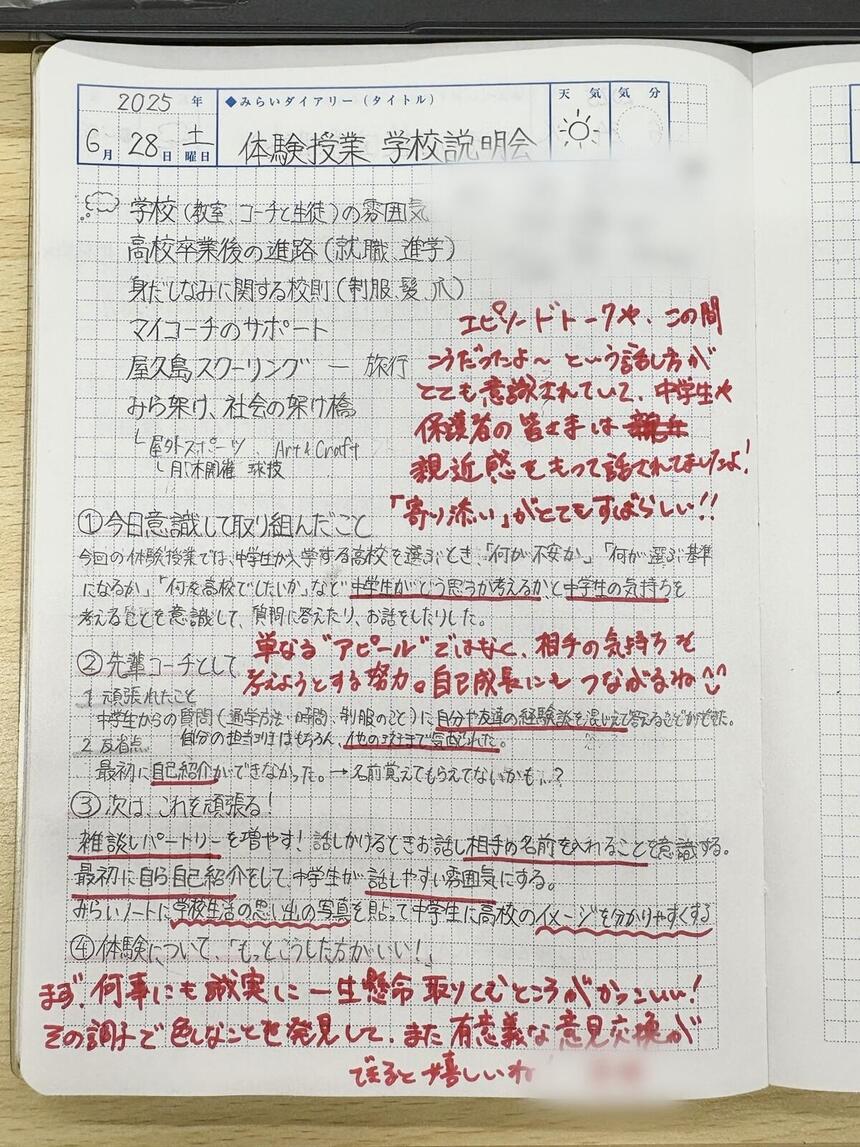 2025年 ◆みらいダイアリー（タイトル） 天気 気分
6月28日土曜日 体験授業 学校説明会
学校（教室、コーチと生徒）の雰囲気
高校卒業後の進路（就職、進学）
身だしなみに関する校則（制服、髪、爪）
マイコーチのサポート
屋久島スクーリング ー 旅行
みら架け、社会の架け橋
└屋外スポーツ、Art&Craft
└月1本開催 球技
エピソードトークや、この間
こうだったよ〜という話し方が
とても意識されていて、中学生や
保護者の皆さまは
親近感をもって話されてましたよ！
「寄り添い」がとてもすばらしい!!
①今日意識して取り組んだこと
今回の体験授業では、中学生が入学する高校を選ぶとき、「何が不安か」「何が選ぶ基準
になるか」「何を高校でしたいか」など中学生がどう思うか考えるか、と中学生の気持ちを
考えることを意識して、質問に答えたり、お話をしたりした。
単なる"アピール"ではなく、相手の気持ちを
考えようとする努力。自己成長にもつながるね
②先輩コーチとして
1 頑張れたこと
中学生からの質問（通学方法・時間、制服のこと）に自分や友達の経験談を混じえて答えることができた。
自分の担当の班はもちろん、他の班まで気配られた。
2 反省点
最初に自己紹介ができなかった。→名前覚えてもらえてないかも…？
③次は、これを頑張る！
雑談レパートリーを増やす！話しかけるときお話し相手の名前を入れることを意識する。
最初に自ら自己紹介をして、中学生が話しやすい雰囲気にする。
みらいノートに学校生活の思い出の写真を貼って中学生に高校のイメージを分かりやすくする
④体験について、「もっとこうした方がいい！」
まず、何事にも誠実に一生懸命取りくむところがかっこいい！
その調子で色んなことを発見して、また有意義な意見交換が
できると嬉しいね